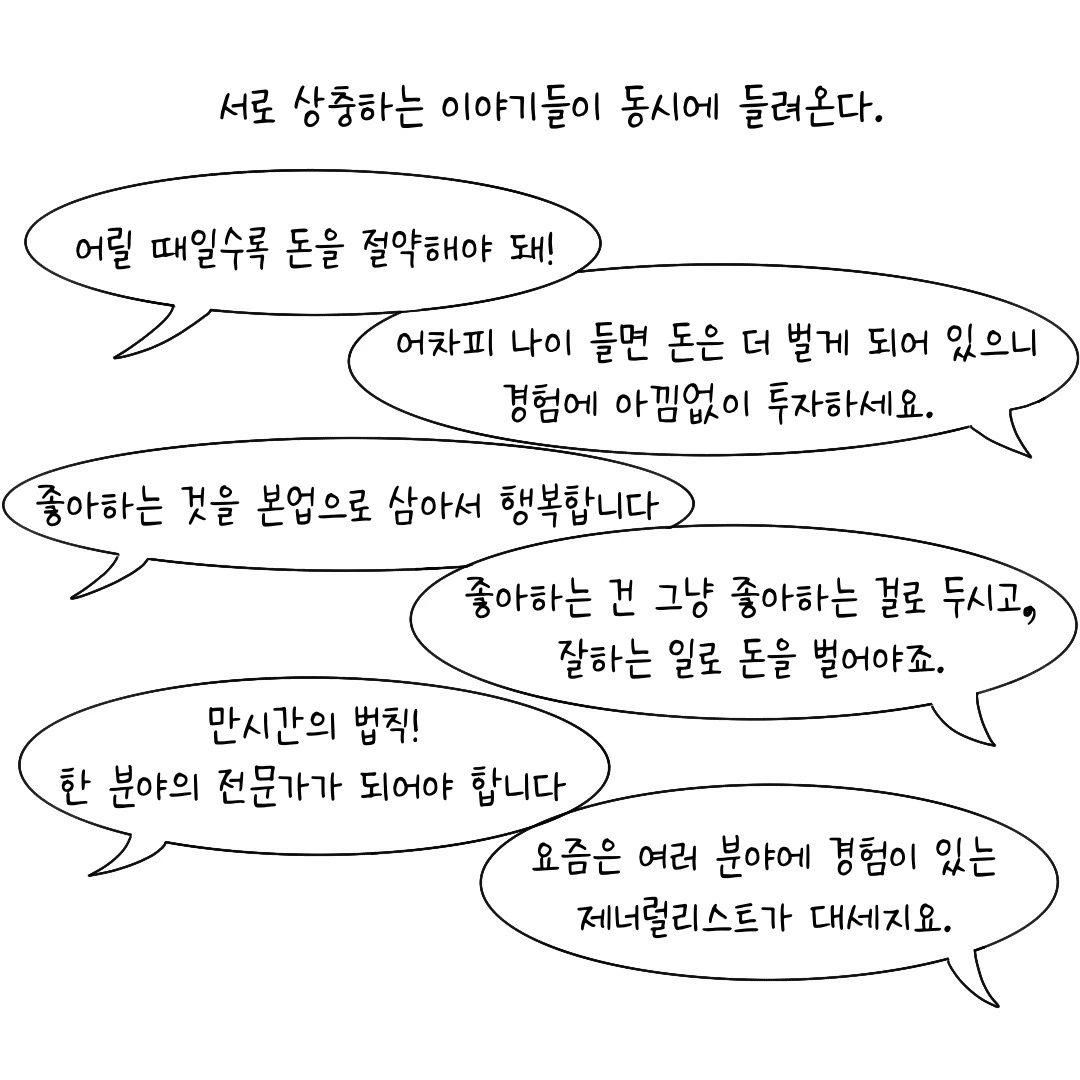 서로 상충하는 이야기들이 동시에 들려온다.
어릴 때일수록 돈을 절약해야 돼!
어차피 나이 들면 돈은 더 벌게 되어 있으니
경험에 아낌없이 투자하세요.
좋아하는 것을 본업으로 삼아서 행복합니다
좋아하는 건 그냥 좋아하는 걸로 두시고,
잘하는 일로 돈을 벌어야죠.
만시간의 법칙!
한 분야의 전문가가 되어야 합니다
요즘은 여러 분야에 경험이 있는
제너럴리스트가 대세지요.